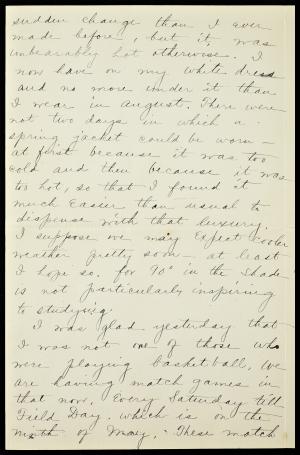 sudden change than I ever
made before, but it was
unbearably hot otherwise. I
now have on my white dress
and no more under it than
I wear in august. There were
not two days in which a
spring jacket could be worn –
at first because it was too
cold and then because it was
too hot, so that I found it
much Easier than usual to
dispense with that luxury.
I suppose we may Expect cooler
weather pretty soon – at least
I hope so. for 90° in the Shade
is not particularly inspiring
to studying.
I was glad yesterday that
I was not one of those who
were playing basket ball. We
are having match games in
that now, Every Saturday till
Field Day. which is on the
ninth of May. These match